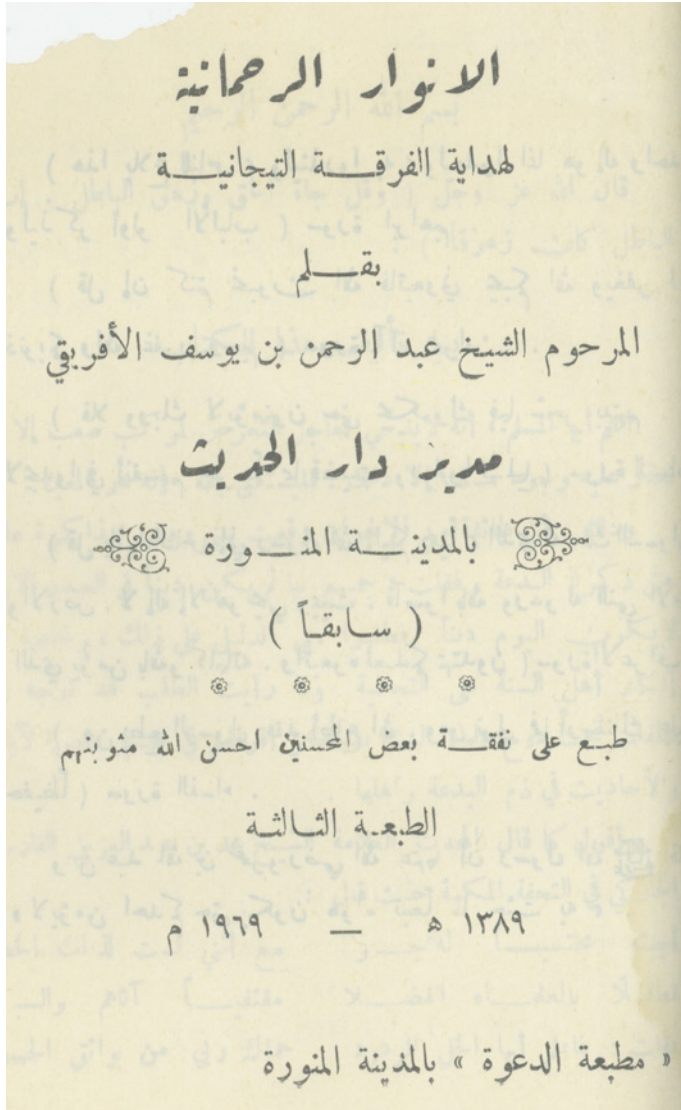 الانوار الرحمانية
لهداية الفرقة التيجانية
بقلم
المرحوم الشيخ عبد الرحمن بن يوسف الأفريقي
مدير دار الحديث
بالمدينة المنورة
( سابقاً )
طبع على نفقة بعض المحسنين احسن الله مثوبتهم
الطبعة الثالثة
١٣٨٩ ه — ١٩٦٩ م
« مطبعة الدعوة » بالمدينة المنورة